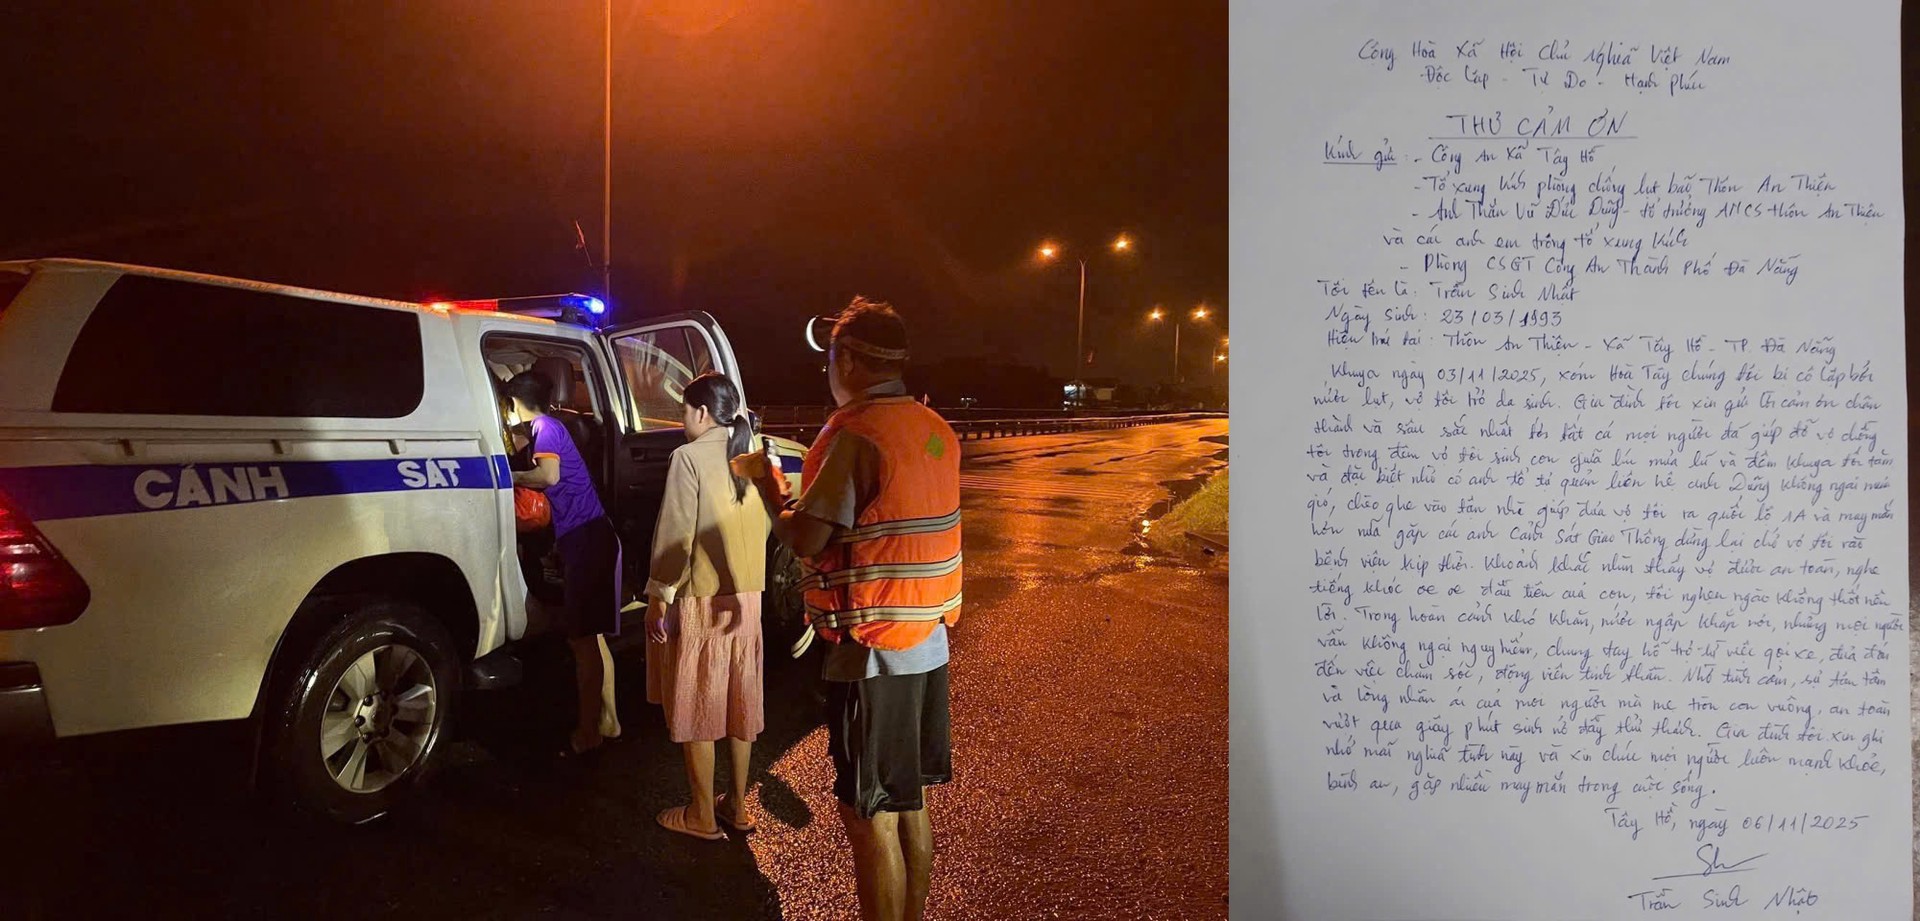 CẢNH SÁT
Cộng Hoà Xã Hội Chủ Nghĩa Việt Nam
Độc lập - Tự Do - Hạnh phúc
THƯ CẢM ƠN
Kính gửi: - Công An Xã Tây Hồ
- Tổ xung kích phòng chống lụt bão Thôn An Thiện
- Anh Trần Vũ Đức Dũng - tổ trưởng ANCS thôn An Thiện
và các anh em trong tổ xung kích
- Phòng CSGT Công An Thành Phố Đà Nẵng
Tôi tên là: Trần Sinh Nhật
Ngày sinh: 23/03/1993
Hiện trú tại: Thôn An Thiện - Xã Tây Hồ - TP. Đà Nẵng
Khuya ngày 03/11/2025, xóm Hoà Tây chúng tôi bị cô lập bởi
nước lụt, vợ tôi trở dạ sinh. Gia đình tôi xin gửi lời cảm ơn chân
thành và sâu sắc nhất tới tất cả mọi người đã giúp đỡ vợ chồng
tôi trong đêm vợ tôi sinh con giữa lúc mưa lũ và đêm khuya tối tăm
và đặc biệt nhờ có anh tổ tự quản liên hệ anh Dũng không ngại mưa
gió, chèo ghe vào tận nhà giúp đưa vợ tôi ra quốc lộ 1A và may mắn
hơn nữa gặp các anh Cảnh Sát Giao Thông dừng lại chở vợ tôi vào
bệnh viện kịp thời. Khoảnh khắc nhìn thấy vợ được an toàn, nghe
tiếng khóc oe oe đầu tiên của con, tôi nghẹn ngào không thốt nên
lời. Trong hoàn cảnh khó khăn, nước ngập khắp nơi, nhưng mọi người
vẫn không ngại nguy hiểm, chung tay hỗ trợ từ việc gọi xe, đưa đón
đến việc chăm sóc, động viên tinh thần. Nhờ tình cảm, sự tận tâm
và lòng nhân ái của mọi người mà mẹ tròn con vuông, an toàn
vượt qua giây phút sinh nở đầy thử thách. Gia đình tôi xin ghi
nhớ mãi nghĩa tình này và xin chúc mọi người luôn mạnh khỏe,
bình an, gặp nhiều may mắn trong cuộc sống.
Tây Hồ, ngày 06/11/2025
Trần Sinh Nhật